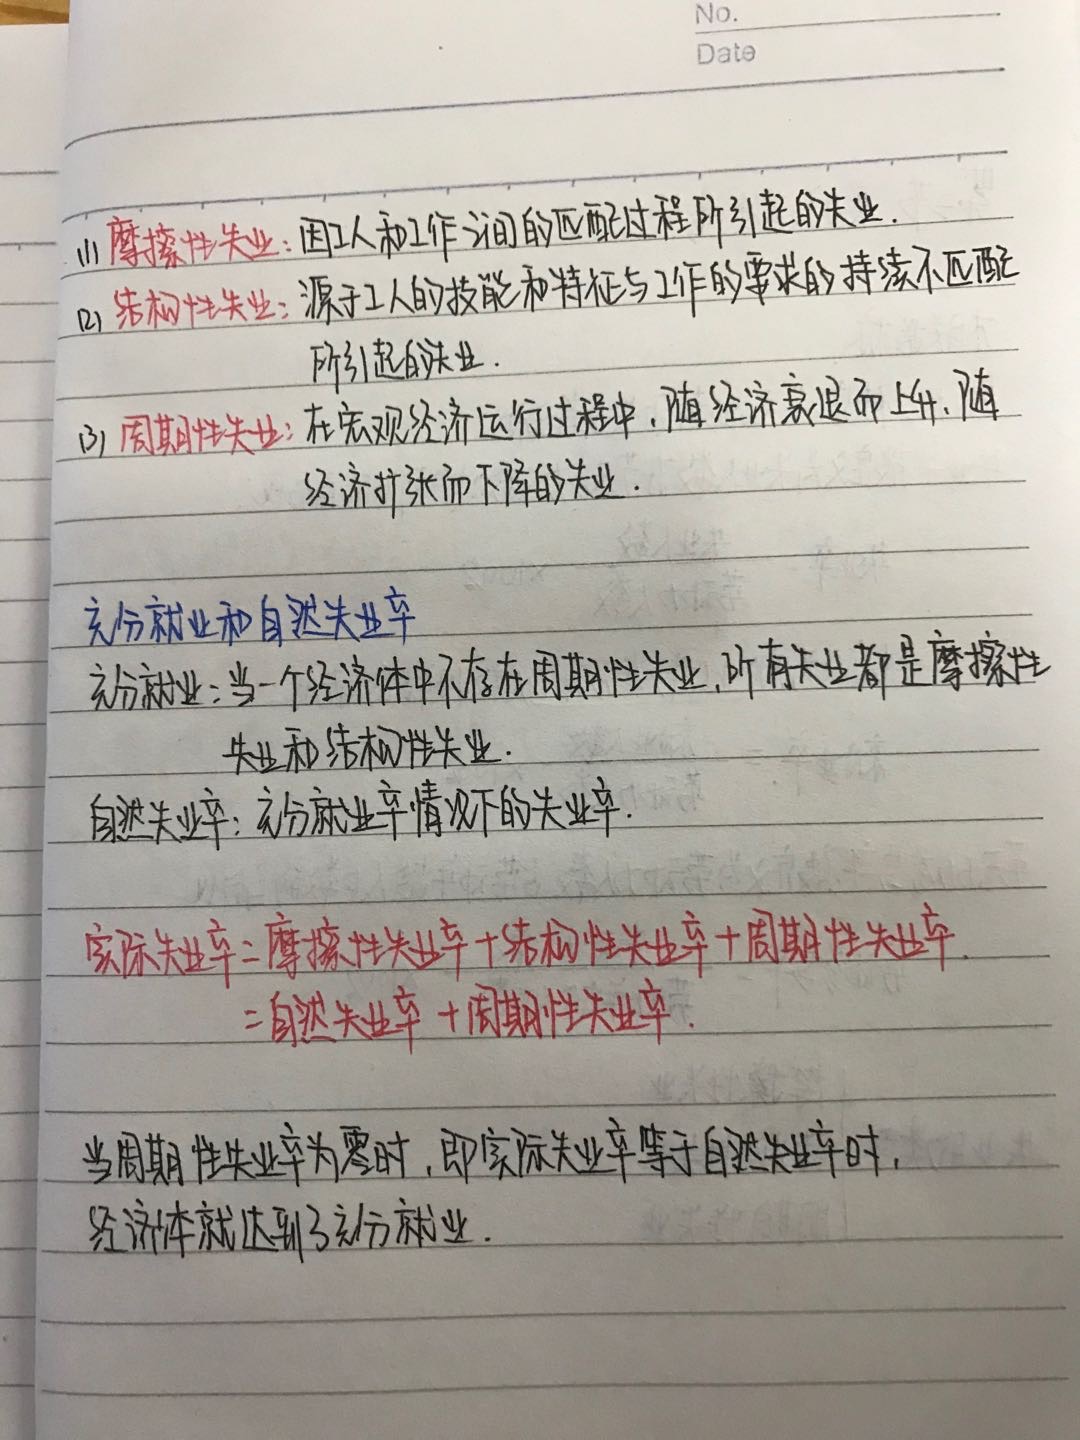 No.
Date
(1) 摩擦性失业：因工人和工作之间的匹配过程所引起的失业.
(2) 结构性失业：源于工人的技能和特征与工作的要求的持续不匹配
所引起的失业.
(3) 周期性失业：在宏观经济运行过程中，随经济衰退而上升，随
经济扩张而下降的失业.
充分就业和自然失业率
充分就业：当一个经济体中不存在周期性失业，所有失业都是摩擦性
失业和结构性失业.
自然失业率：充分就业率情况下的失业率.
实际失业率=摩擦性失业率+结构性失业率+周期性失业率.
=自然失业率+周期性失业率.
当周期性失业率为零时，即实际失业率等于自然失业率时，
经济体就达到了充分就业.